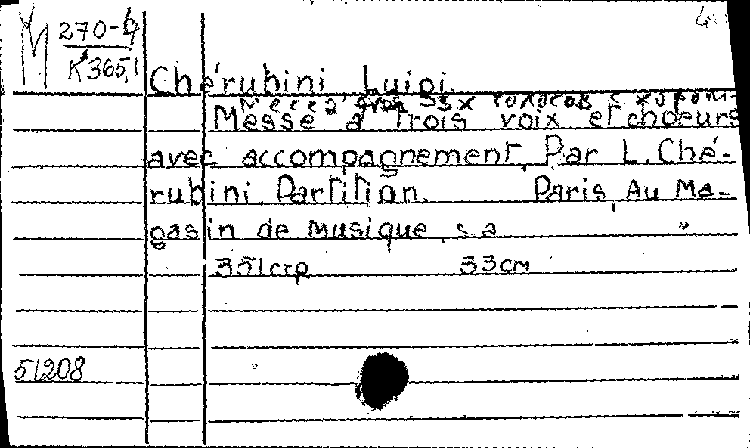 М 270-4
К365,1
Chérubini, Luigi.
Месса для 3х голосов с хором
Messe à trois voix et choeurs
avec accompagnement, Par L. Ché-
rubini Partition. Paris, Au Ma-
gasin de musique, s a
351стр 33см
51208